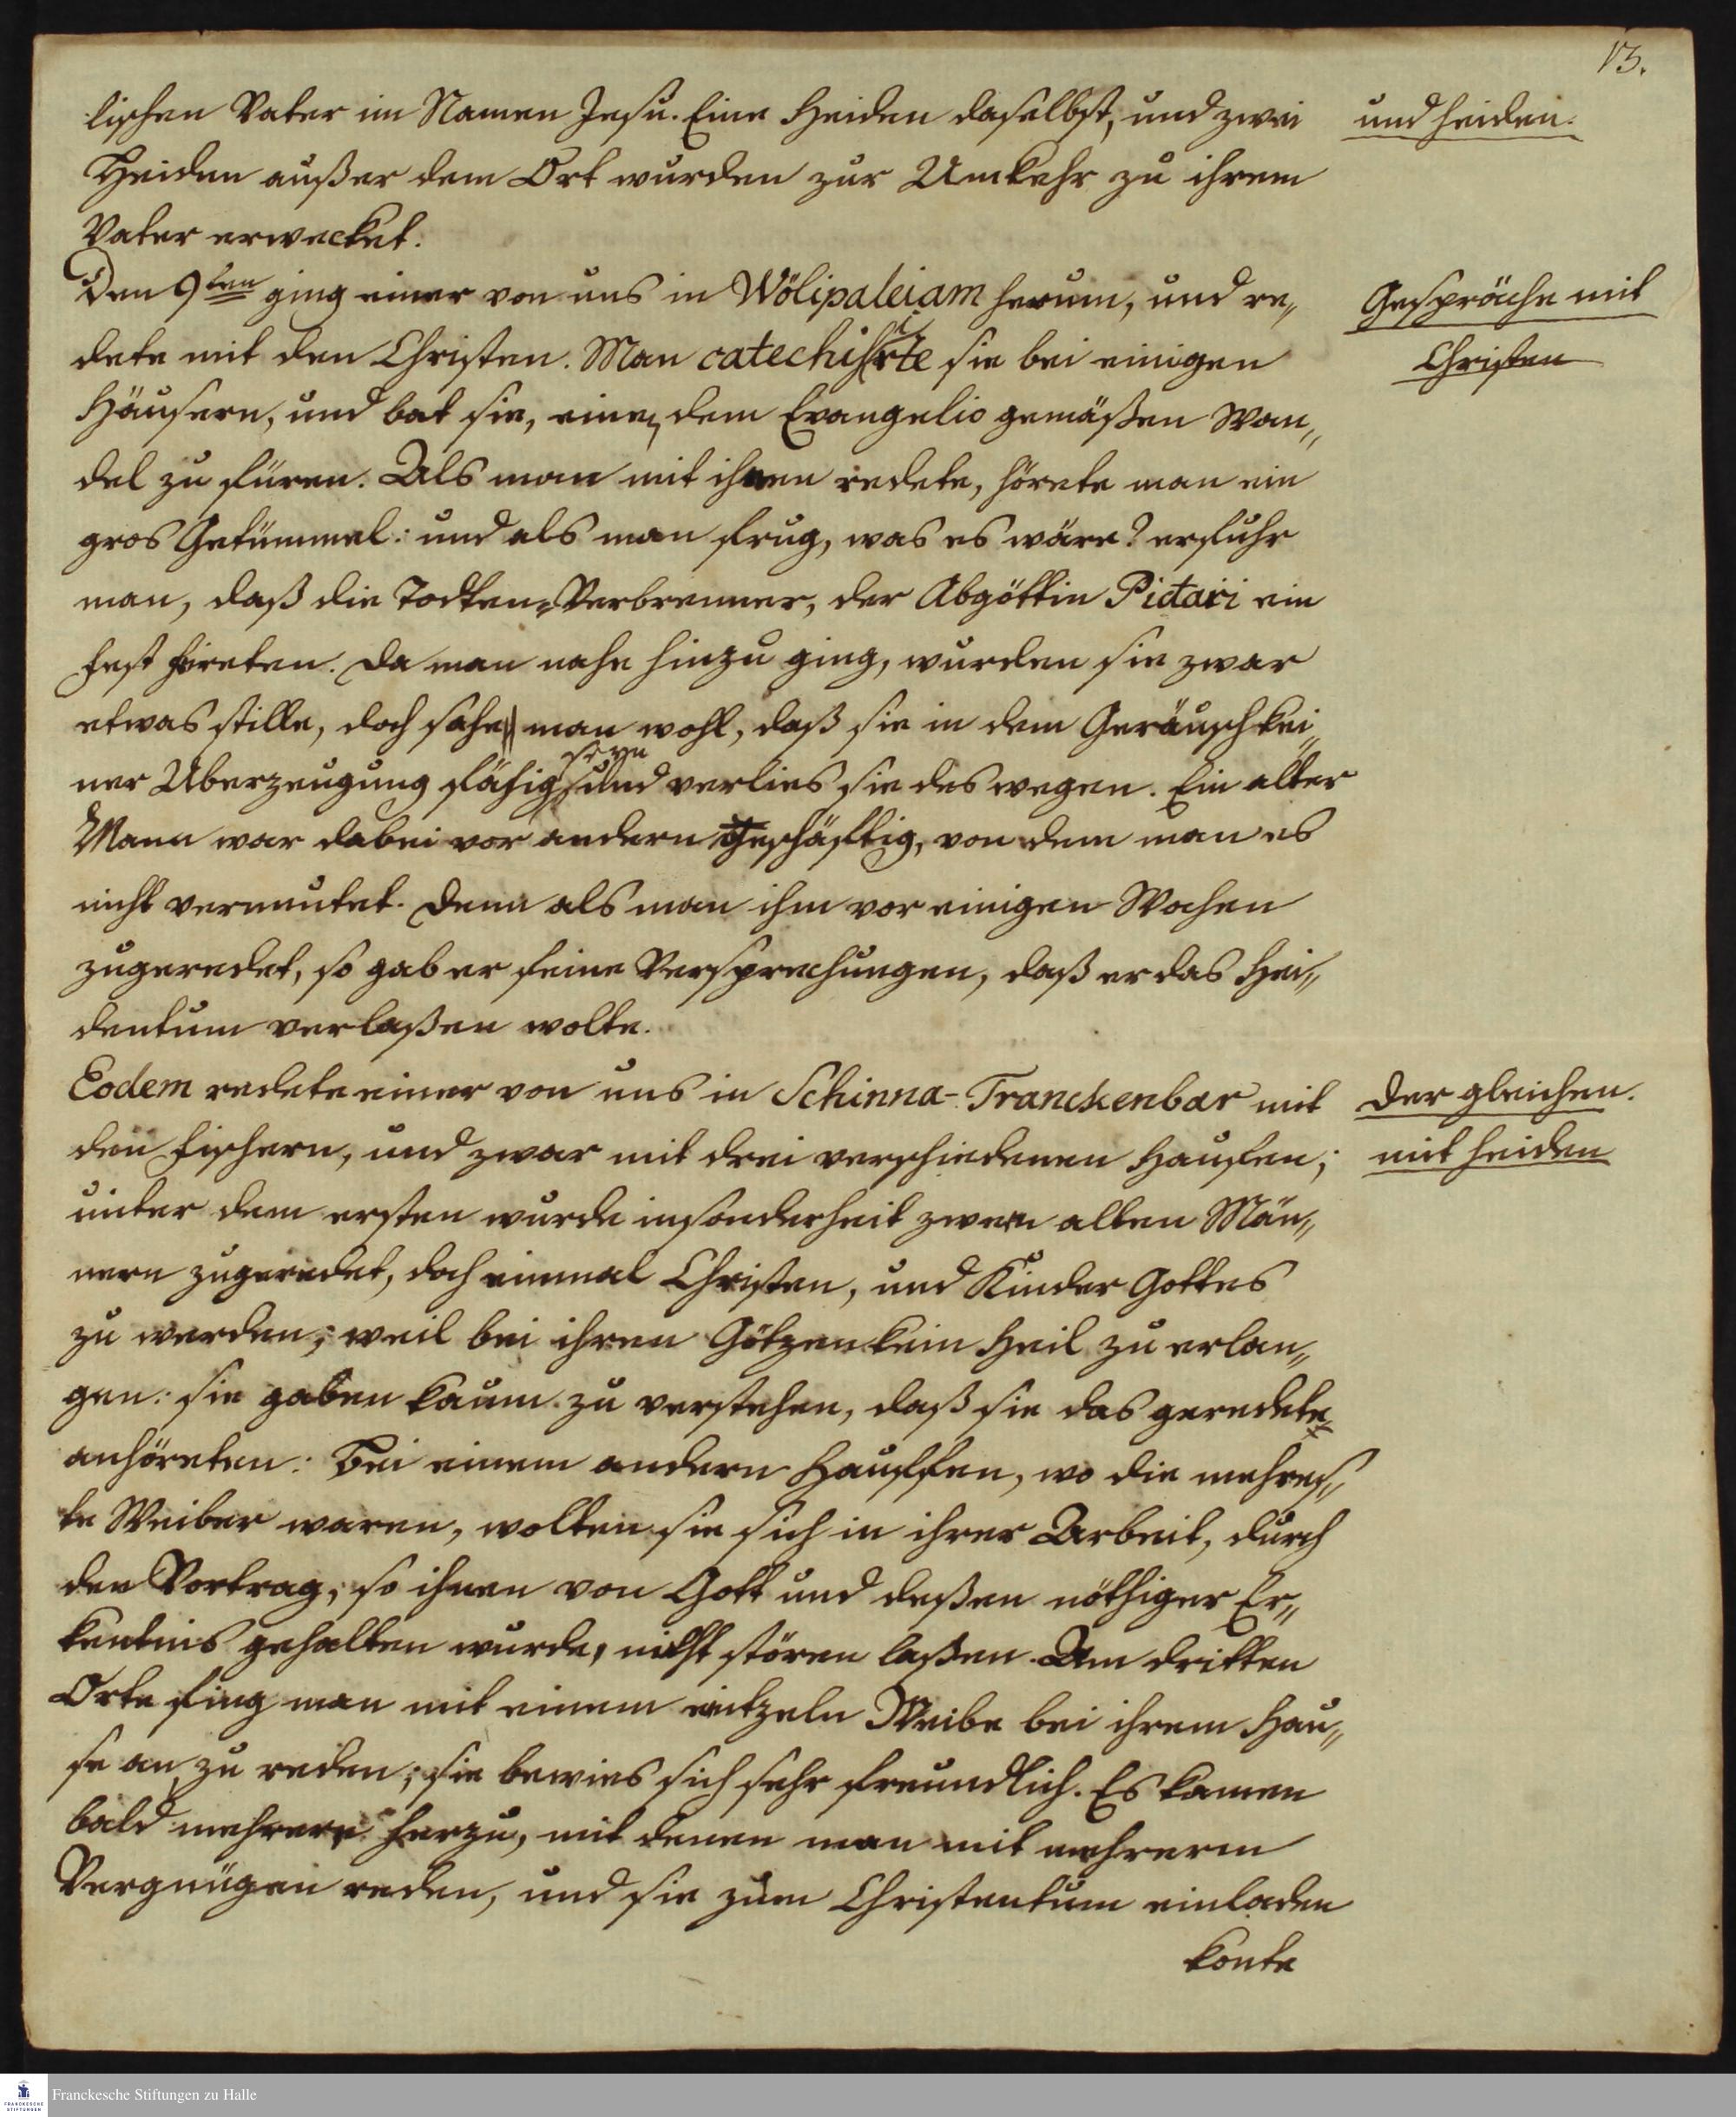 13.
lischen Vater im Namen Jesu. Eine Heiden daselbst, und zwei
und Heiden.
Heiden außer dem Ort wurden zur Umkehr zu ihrem
Vater erwecket.
Den 9ten ging einer von uns in Wölipaleiam herum, und re„
Gespräche mit
dete mit den Christen. Man catechisirte sie bei einigen
Christen
Häusern, und bat sie, einen dem Evangelio gemäßen Wan„
del zu füren. Als man mit ihnen redete, hörete man ein
gros Getümmel: und als man frug, was es wäre? erfuhr
man, daß die Todten-Verbrenner, der Abgöttin Pidari ein
Fest fireten. Da man nahe hinzu ging, wurden sie zwar
etwas stille, doch sahe man wohl, daß sie in dem Geräusch kei„
ner Uberzeugung fähig seyn und verlies sie deswegen. Ein alter
Mann war dabei vor andern geschäftig, von dem man es
nicht vermutet. Denn als man ihm vor einigen Wochen
zugeredet, so gab er feine Versprechungen, daß er das Hei„
dentum verlaßen wolte.
Eodem redete einer von uns in Schinna-Tranckenbar mit
Der gleichen.
den Fischern, und zwar mit drei verschiedenen Haufen;
mit Heiden
unter dem ersten wurde insonderheit zween alten Män„
nern zugeredet, doch einmal Christen, und Kinder Gottes
zu werden; weil bei ihren Götzen kein Heil zu erlan„
gen: sie gaben kaum zu verstehen, daß sie das geredete
anhöreten: Bei einem andern Hauffen, wo die mehres„
te Weiber waren, wolten sie sich in ihrer Arbeit, durch
den Vortrag, so ihnen von Gott und deßen nöthiger Er„
kentnis gehalten wurde, nicht stören laßen. Am dritten
Orte fing man mit einem eintzeln Weibe bei ihrem Hau„
se an zu reden; sie bewies sich sehr freundlich. Es kamen
bald mehrere herzu, mit denen man mit mehrerm
Vergnügen reden, und sie zum Christentum einladen
konte
FRANCKESCHE STIFTUNGEN
Franckesche Stiftungen zu Halle